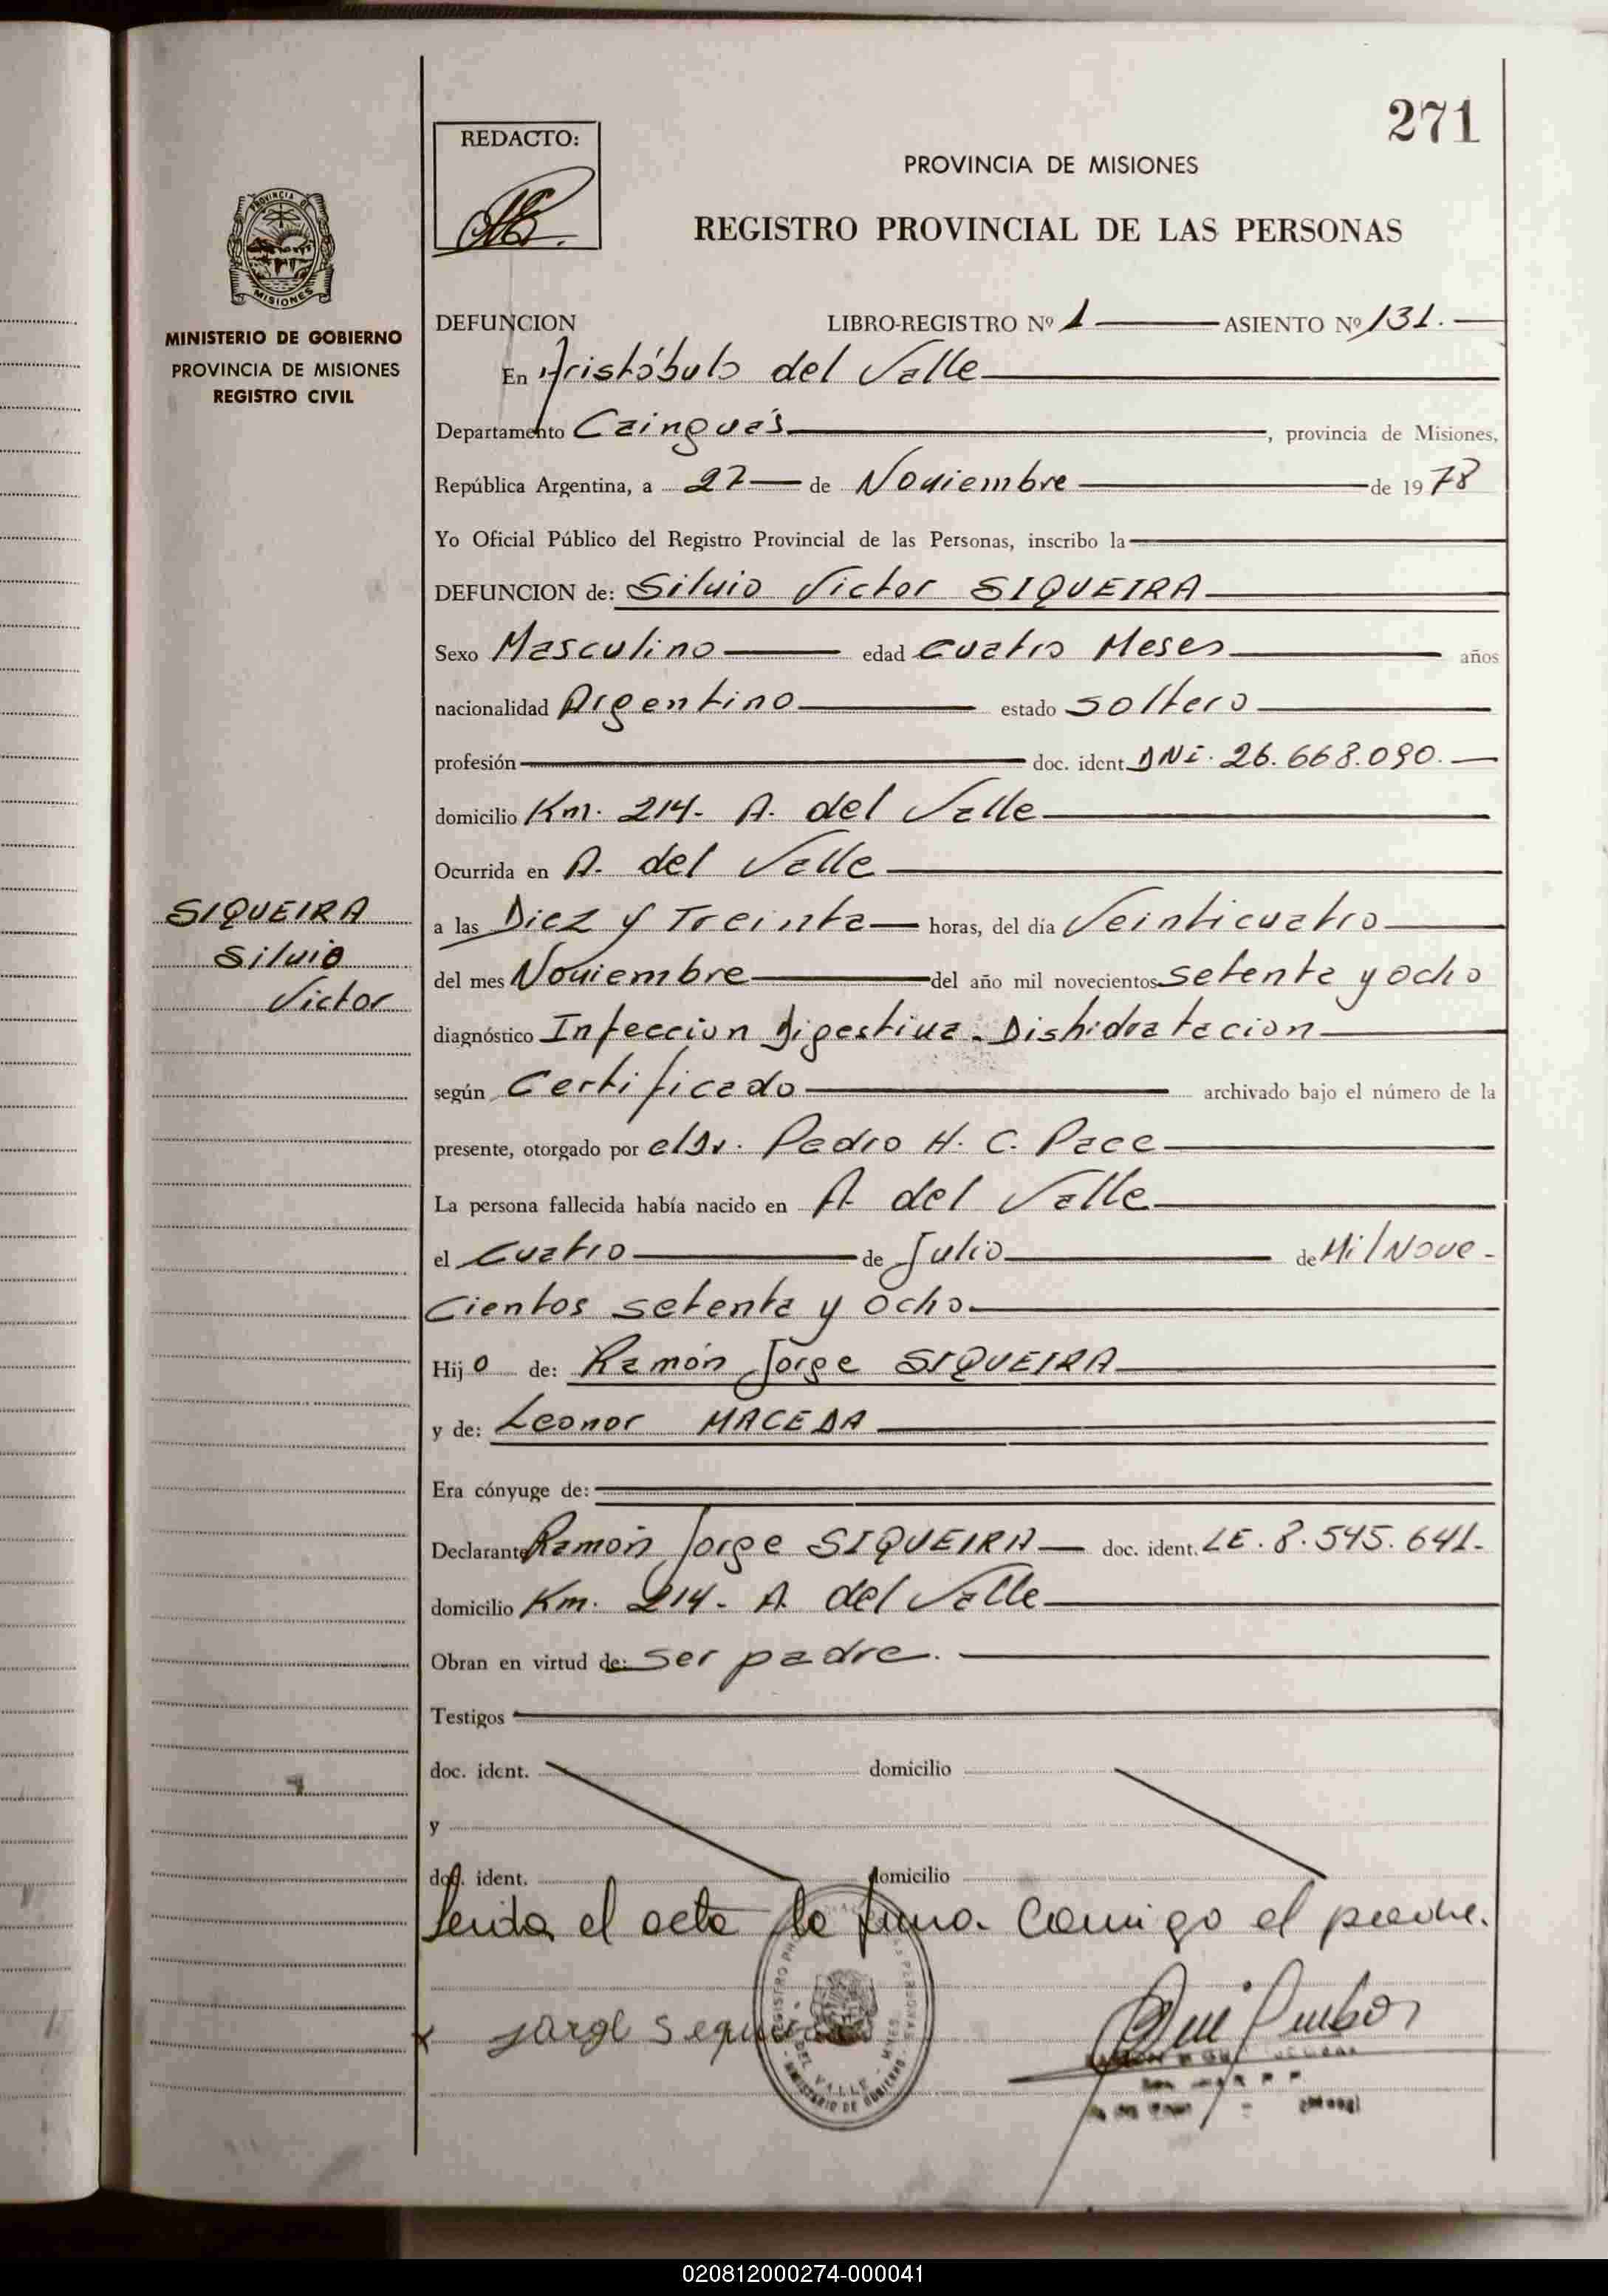 271
REDACTO:
PROVINCIA DE MISIONES
REGISTRO PROVINCIAL DE LAS PERSONAS
PROVINCIA DE
MISIONES
MINISTERIO DE GOBIERNO
PROVINCIA DE MISIONES
REGISTRO CIVIL
DEFUNCION LIBRO-REGISTRO Nº 1 ASIENTO Nº 131.
En Aristóbulo del Valle
Departamento Cainguás, provincia de Misiones,
República Argentina, a 27 de Noviembre de 1978
Yo Oficial Público del Registro Provincial de las Personas, inscribo la
DEFUNCION de: Silvio Victor SIQUEIRA
Sexo Masculino edad cuatro Meses años
nacionalidad Argentino estado soltero
profesión doc. ident. DNI. 26.668.090.
domicilio Km. 214. A. del Valle
Ocurrida en A. del Valle
SIQUEIRA
Silvio
Victor
a las Diez y Treinta horas, del día Veinticuatro
del mes Noviembre del año mil novecientos setenta y ocho
diagnóstico Infeccion Digestiva. Dishidratacion
según Certificado archivado bajo el número de la
presente, otorgado por el Dr. Pedro H. C. Pace
La persona fallecida había nacido en A. del Valle
el cuatro de Julio de Mil Nove-
cientos setenta y ocho.
Hijo de: Ramón Jorge SIQUEIRA
y de: Leonor MACEDA
Era cónyuge de:
Declarante Ramón Jorge SIQUEIRA doc. ident. LE. 8.545.641.
domicilio Km. 214. A. del Valle
Obran en virtud de: ser padre.
Testigos
doc. ident. domicilio
y
doc. ident. domicilio
Leida el acta la firma comigo el padre.
x Jorge Sequeira
DEL VALLE - MNES
MINISTERIO DE GOBIERNO
020812000274-000041